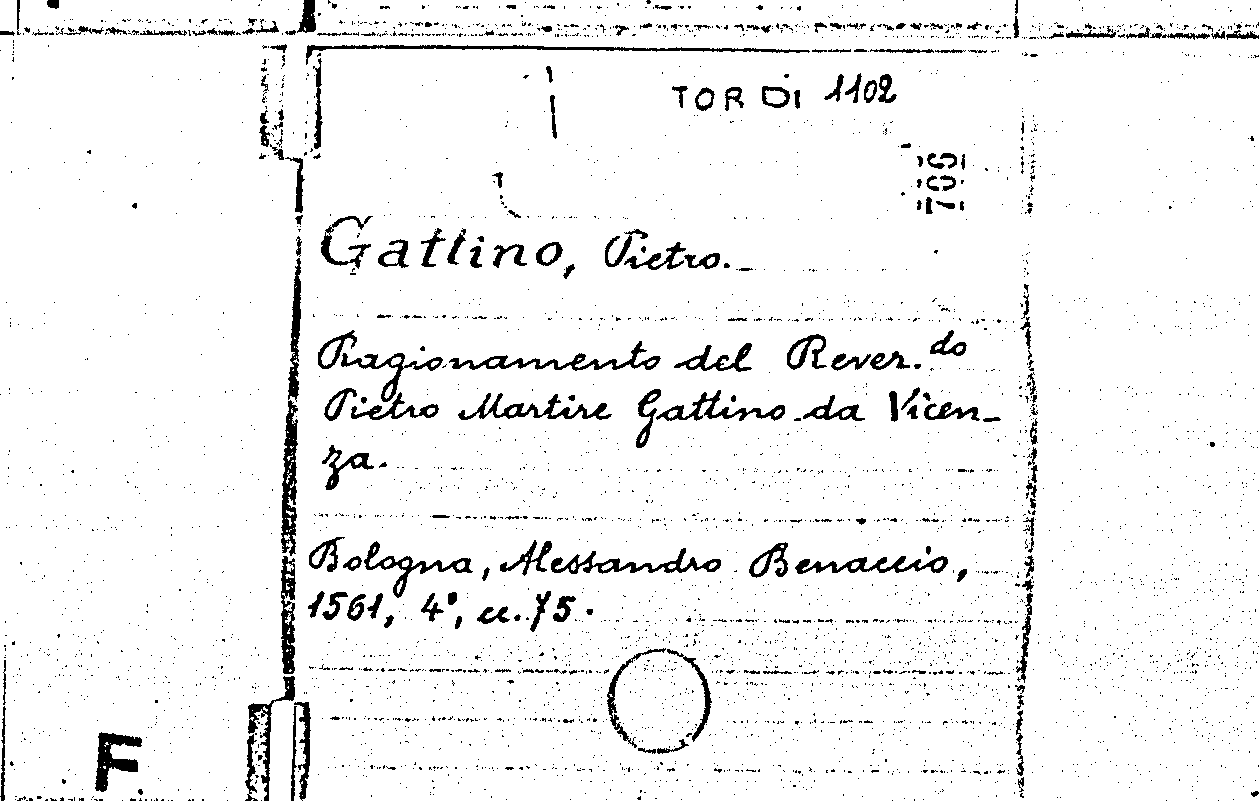 TORDI 1102
706
Gattino, Pietro.
Ragionamento del Rever.do
Pietro Martire Gattino da Vicen-
za.
Bologna, Alessandro Benaccio,
1561, 4°, cc. 75.
F